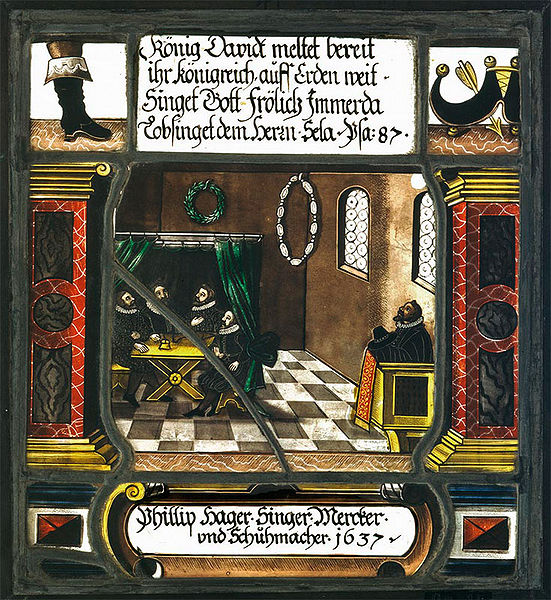 König David meltet bereit
ihr Königreich auff Erden weit.
Singet Gott Frölich Immerda
Lobsinget dem Herrn. Sela. Psa: 87.
Phillip Hager. Singer. Mercker.
vnd Schuhmacher. 1637